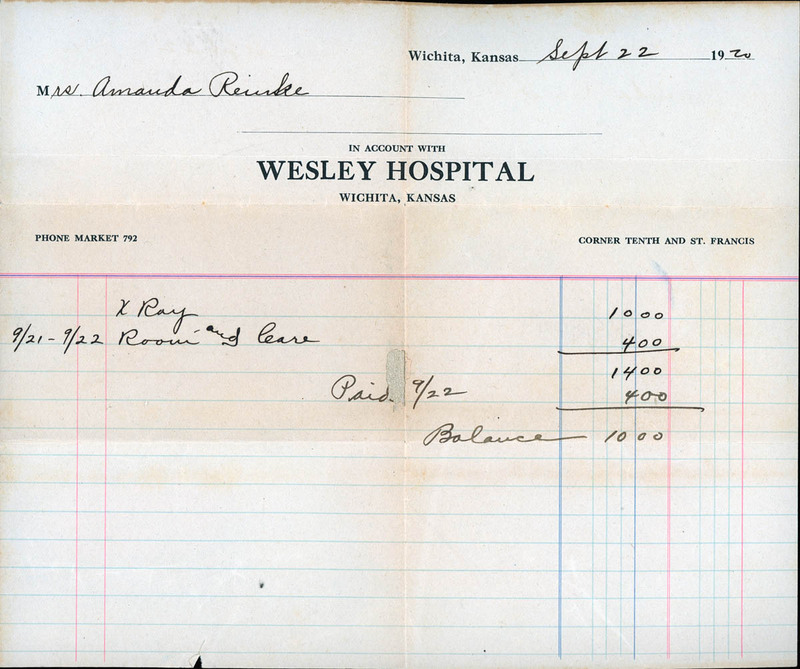 Wichita, Kansas Sept 22 1920
Mrs. Amanda Reinke
IN ACCOUNT WITH
WESLEY HOSPITAL
WICHITA, KANSAS
PHONE MARKET 792 CORNER TENTH AND ST. FRANCIS
X Ray 10 00
9/21 - 9/22 Room and Care 4 00
14 00
Paid 9/22 4 00
Balance 10 00